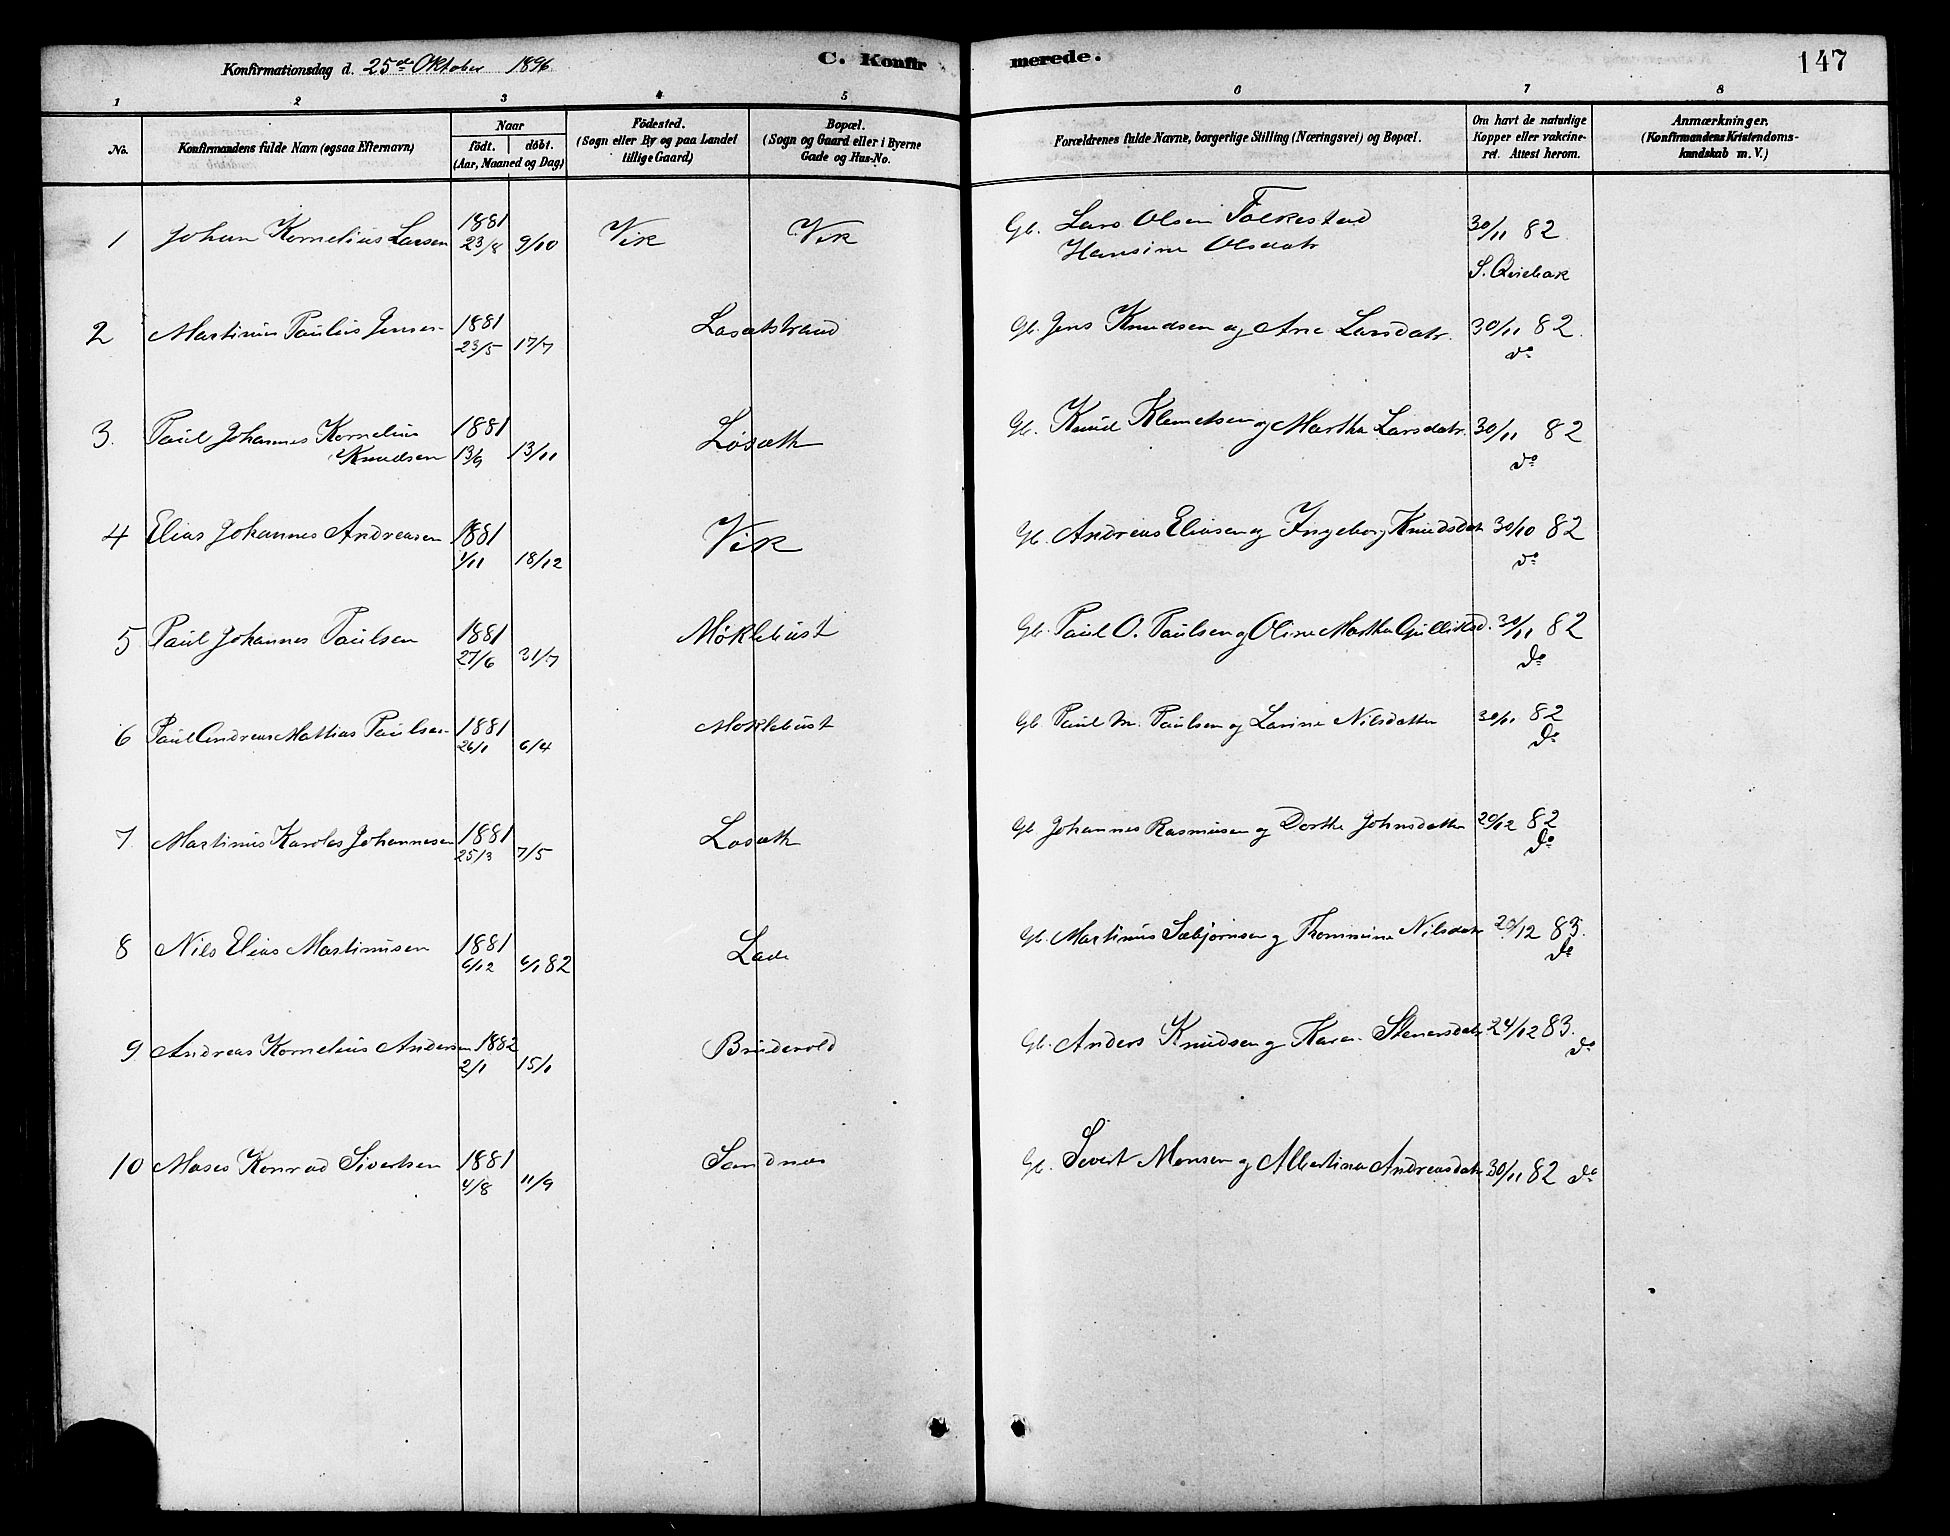 Konfirmationsdag d. 25de Oktober 1896
C. Konfirmerede.
147
1 2 3 4 5 6 7 8
No.
Konfirmandens fulde Navn (ogsaa Efternavn)
Naar
födt. döbt.
(Aar, Maaned og Dag)
Födested.
(Sogn eller By og paa Landet
tillige Gaard)
Bopæl.
(Sogn og Gaard eller i Byerne
Gade og Hus-No.
Forældrenes fulde Navne, borgerlige Stilling (Næringsvei) og Bopæl.
Om havt de naturlige
Kopper eller vakcine-
ret. Attest herom.
Anmærkninger,
(Konfirmandens Kristendoms-
kundskab m. V.)
1 Johan Kornelius Larsen 1881 23/8 9/10 Vik Vik Gb. Lars Olsen Folkestad
Hansine Olsdatr 30/11 82
2 Martinus Paulus Jensen 1881 23/5 17/7 Løsætstrand Gb. Jens Knudsen og Ane Larsdatr. 30/11 82. do
3. Paul Johannes Kornelius
Knudsen 1881 13/9 13/11 Løsæth Gb. Knud Klemetsen og Martha Larsdatr. 30/11 82 do
4 Elias Johannes Andreasen 1881 1/11 18/12 Vik Gb. Andreas Eliasen og Ingeborg Knudsdatr 30/10 82 do
5 Paul Johannes Paulsen 1881 27/6 31/7 Møklebust Gb. Paul O. Paulsen og Oline Martha Gulliksd. 30/11 82 do
6 Paul Andreas Mathias Paulsen 1881 26/1 6/4 Moklebust Gb. Paul M. Paulsen og Larine Nilsdatter 30/11 82 do
7. Martinus Karolus Johannesen 1881 25/3 7/5 Løsæth Gb. Johannes Rasmusen og Dorthe Johnsdatter 20/12 82 do
8 Nils Elias Martinusen 1881 6/12 6/1 82 Lade Gb. Martinus Sæbjørnsen og Thommine Nilsdatr 20/12 83. do
9 Andreas Kornelius Andersen 1882 2/1 15/1 Brudevold Gb. Anders Knudsen og Karen Stenersdatr 24/12 83. do
10 Moses Konrad Sivertsen 1881 4/8 11/9 Sandnæs Gb. Sivert Monsen og Albertine Andreasdatr 30/11 82 do